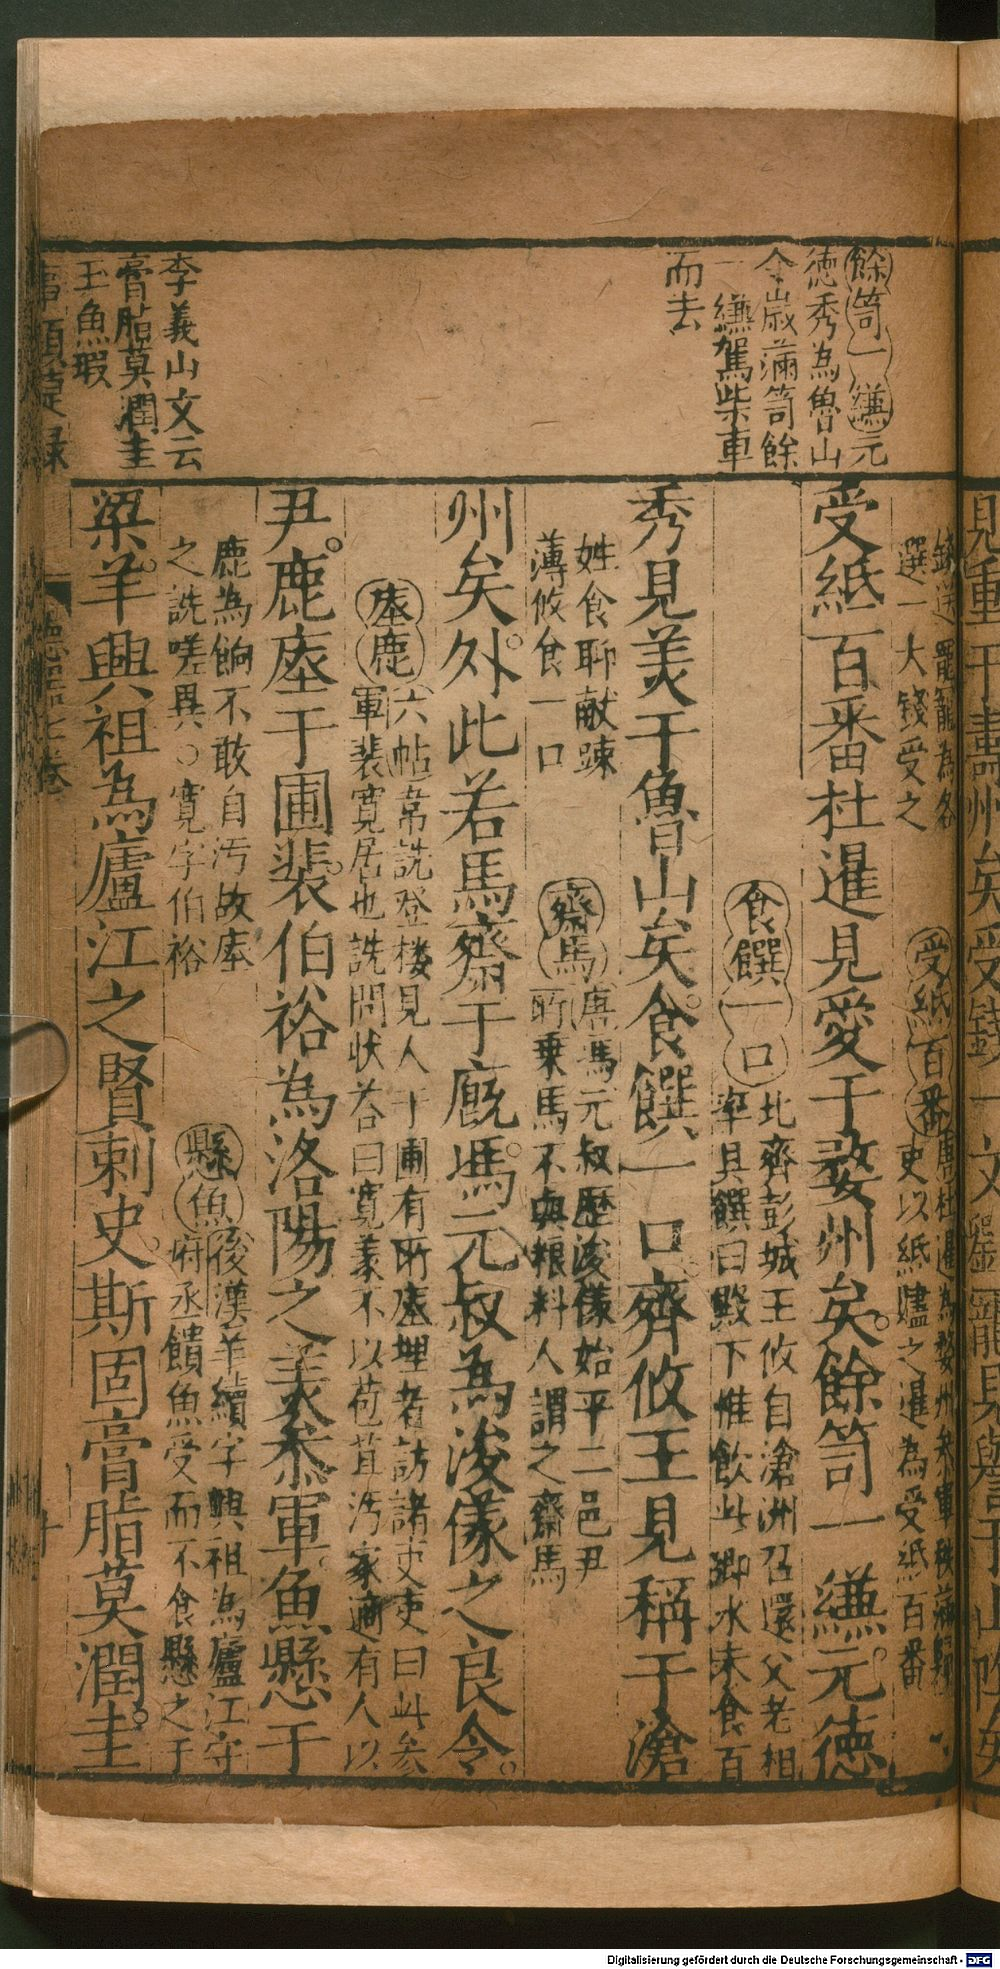 餘笥一縑元
德秀為魯山
令歲滿笥餘
一縑駕柴車
而去
李義山文云
膏脂莫潤圭
玉魚瑕
錢送寵為各
選一大錢受之
受紙百番
杜暹為婺州叅軍秩滿歸
吏以紙贐之暹為受紙百番
受紙百番杜暹見愛于婺州矣餘笥一縑元德
食饌一口
北齊彭城王攸自滄洲召還父老相
率具饌曰殿下惟飲此鄉水未食百
秀見美于魯山矣食饌一口齊攸王見稱于滄
姓食聊献踈
薄攸食一口
齋馬
唐馮元叔歷浚儀始平二邑尹
所乗馬不與粮料人謂之齋馬
州矣外此若馬齋于廐馮元叔為浚儀之良令
瘞鹿
六帖韋詵登楼見人于圃有所瘞埋者訪諸吏吏曰此叅
軍裴寛居也詵問状荅曰寛義不以苞苴汚家適有人以
尹鹿瘞于圃裴伯裕為洛陽之義叅軍魚懸于
鹿為餉不敢自汚故瘞
之詵嗟異○寛字伯裕
懸魚
後漢羊續字興祖為廬江守
府丞饋魚受而不食懸之于
梁羊興祖為廬江之賢刺史斯固膏脂莫潤圭
事類捷録
德器七卷
十
Digitalisierung gefördert durch die Deutsche Forschungsgemeinschaft - DFG